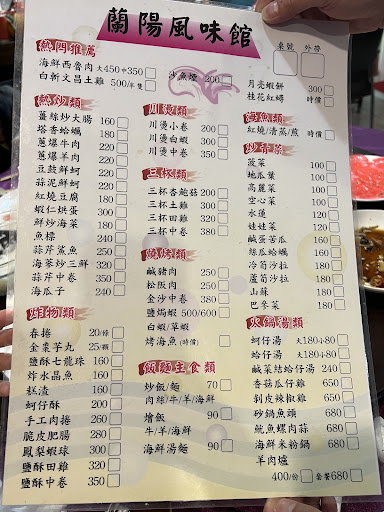 蘭陽風味館
桌號 外帶
熱門推薦
海鮮西魯肉 大450中350
白斬文昌土雞 500/年隻
沙魚煙 200
月亮蝦餅 300
桂花紅蟳 時價
熱炒類
薑絲炒大腸 160
塔香蛤蠣 160
蔥爆牛肉 220
蔥爆羊肉 220
豆鼓鮮蚵 220
蒜泥鮮蚵 220
紅燒豆腐 180
蝦仁烘蛋 300
鮮炒海菜 180
魚標 240
蒜芹鯊魚 250
海茶炒三鮮 320
蒜芹中卷 350
海瓜子 240
炸物類
春捲 20/條
金棗芋丸 25/顆
鹽酥七龍珠 160
炸水晶魚 160
糕渣 160
蚵仔酥 200
手工肉捲 260
脆皮肥腸 280
鳳梨蝦球 300
鹽酥田雞 320
鹽酥中卷 350
川燙類
川燙小卷 200
川燙白蝦 300
川燙中卷 350
三杯類
三杯杏鮑菇 200
三杯土雞 300
三杯田雞 320
三杯中卷 380
鹹豬肉 250
松阪肉 250
金沙中卷 380
鹽焗蝦 500/600
白蝦/草蝦
烤海魚(時價)
飯麵主食類
炒飯/麵 70
肉絲/牛/羊/海鮮
燴飯 90
牛/羊/海鮮
海鮮湯麵 90
紅燒/清蒸/煎 時價
菠菜 100
地瓜葉 100
高麗菜 100
空心菜 100
水蓮 120
娃娃菜 120
鹹蛋苦瓜 160
絲瓜蛤蠣 160
冷筍沙拉 180
蘆筍沙拉 180
山蘇 180
巴參菜 180
火鍋湯類
蚵仔湯 大180小80
蛤仔湯 大180小80
鹹菜結蛤仔湯 240
香菇瓜仔雞 450
剝皮辣椒雞 450
砂鍋魚頭 680
魷魚螺肉蒜 680
海鮮米粉鍋 680
羊肉爐
400/份 套餐680